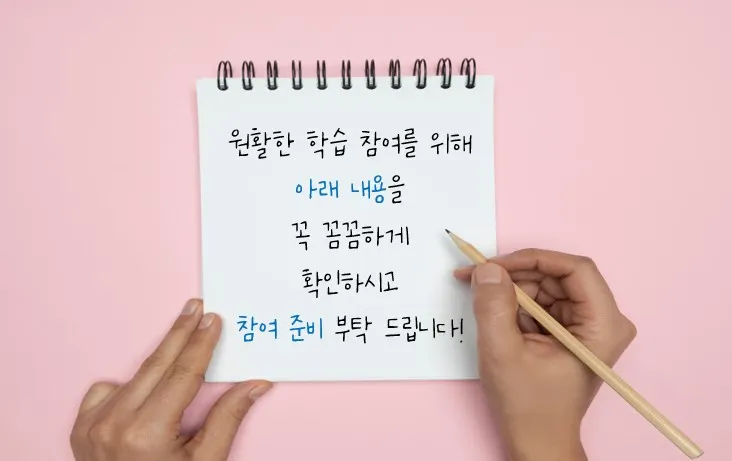 원활한 학습 참여를 위해
아래 내용을
꼭 꼼꼼하게
확인하시고
참여 준비 부탁 드립니다!